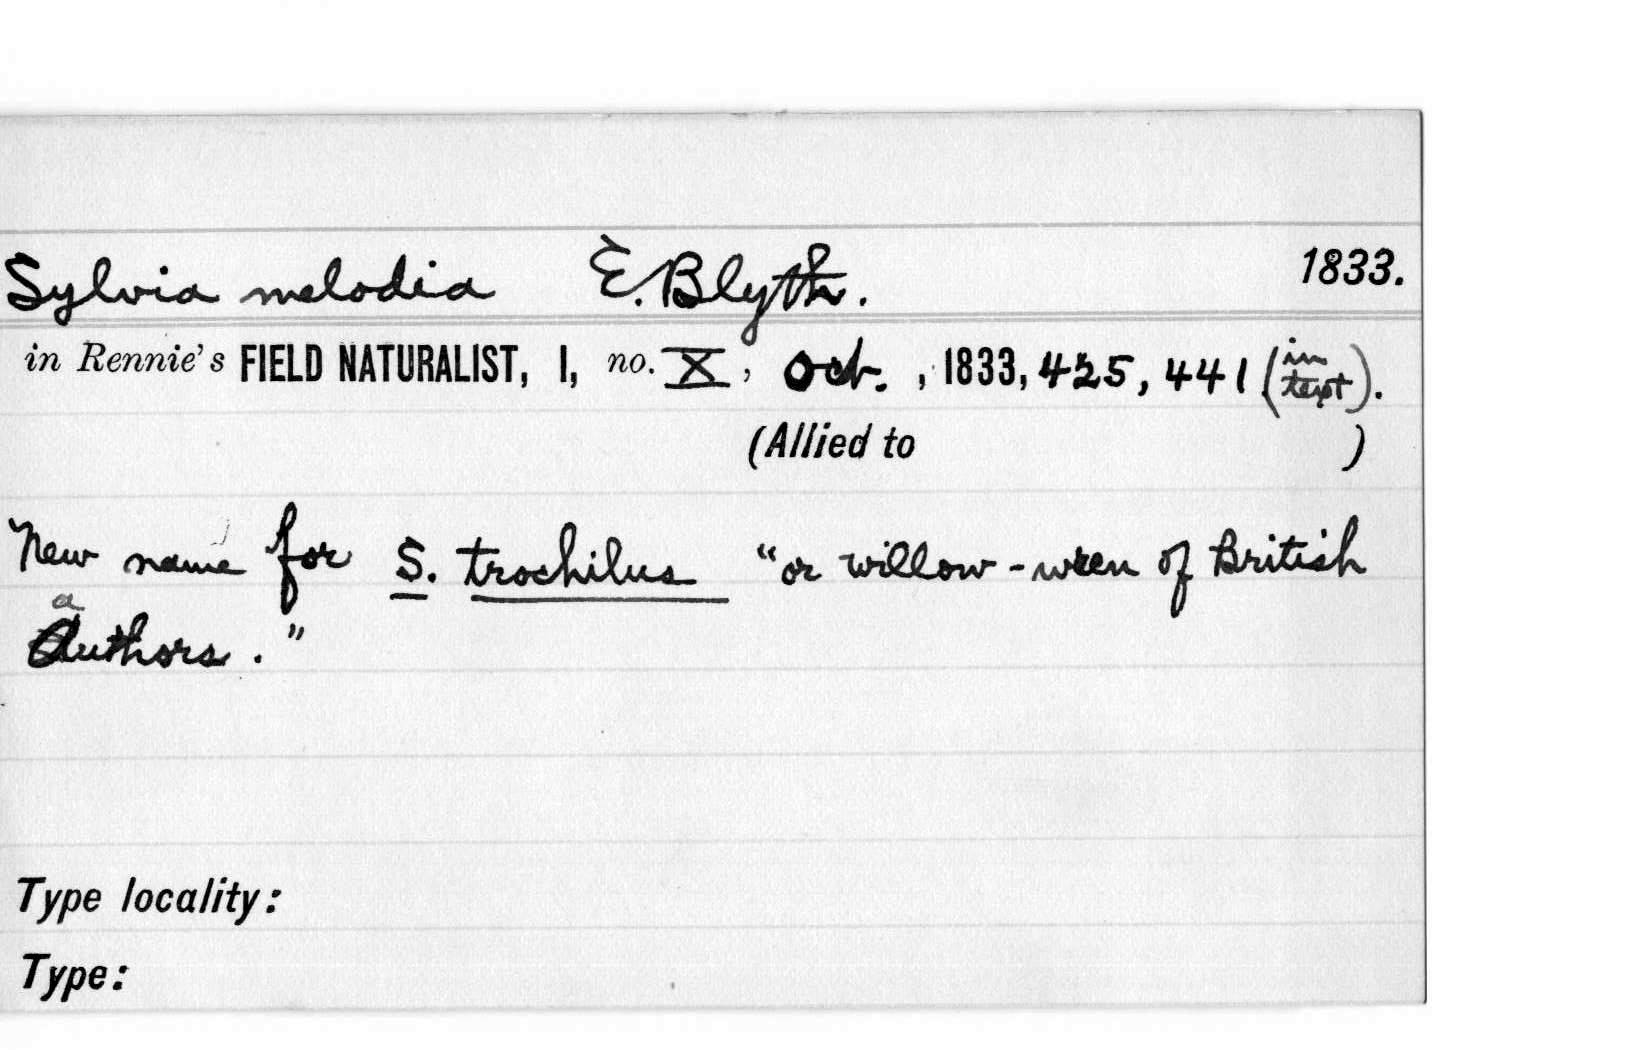 Sylvia melodia E. Blyth. 1833.
in Rennie's FIELD NATURALIST, I, no. X, Oct. , 1833, 425, 441 (in text).
(Allied to )
New name for S. trochilus "or willow-wren of British
a
Authors."
Type locality:
Type: